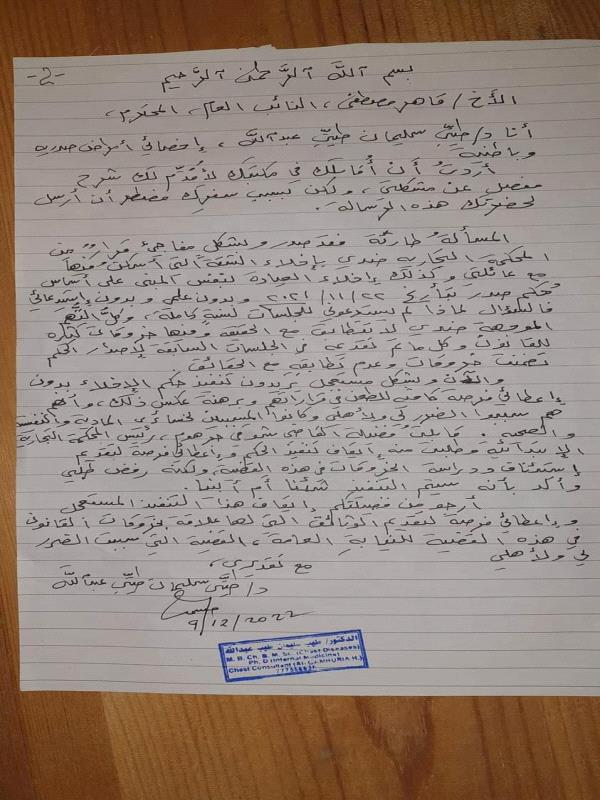 -2-
بسم الله الرحمن الرحيم
الأخ / قاهر مصطفى، النائب العام، المحترم،
أنا د/ طيّب سليمان طيّب عبدالله، إخصائي أمراض صدرية
وباطنية
أردتُ أن أُقابلك في مكتبك لأُقدّم لك شرح
مفصل عن مشكلتي، ولكن بسبب سفرك مضطر أن أرسل
لحضرتك هذه الرسالة.
المسألة طارئة فقد صدر وبشكل مفاجئ قرارٌ من
المحكمة التجارية ضدي بإخلاء الشقة التي أسكن فيها
مع عائلتي وكذلك بإخلاء العيادة لنفس المبنى على أساس
حُكم صدر بتأريخ ٢٢/١١/٢٠٢١ وبدون علمي وبدون إستدعائي
فالسؤال لماذا لم يستدعوني للجلسات لسنةٍ كاملة، وكل التُهَم
الموجهة ضدي لا تتطابق مع الحقيقة وفيها خروقات كثيره
للقانون وكل ما تم تقديمه في الجلسات السابقة لإصدار الحكم
تضمنت خروقات وعدم تطابقه مع الحقائق.
والآن وبشكل مستعجل يريدون تنفيذ حكم الإخلاء بدون
إعطائي فرصة كافيه للطعن في قراراتهم وبرهنة عكس ذلك، وأنهم
هم سببوا الضرر لي ولأهلي وكانوا المتسببين لخسائري المادية والنفسية
والصحيه. قابلتُ فضيلة القاضي رئيس المحكمة التجارية
الإبتدائية وطلبت منه إيقاف تنفيذ الحكم وإعطائي فرصة لتقديم
إستئناف ودراسة الخروقات في هذه القضية ولكنه رفض طلبي
وأكد بأنه سيتم التنفيذ شئنا أم أبينا.
أرجو من فضيلتكم إيقاف هذا التنفيذ المستعجل
وإعطائي فرصة لتقديم الوثائق التي لها علاقة بخروقات القانون
في هذه القضية للنيابة العامة، القضية التي سببت الضرر
لي ولأهلي
مع تقديري،
د/ طيّب سليمان طيّب عبدالله
9/12/2022
الدكتور/ طيب سليمان طيب عبدالله
M. B. Ch. B. M. Sc. (Chest Diseases)
Ph. D (Internal Medicine)
Chest Consultant (AL-GAMHURIA H.)